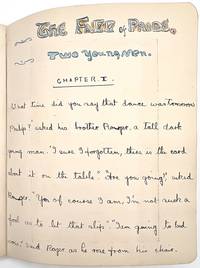 The Fate of Pride,
Two Young Men.
CHAPTER. I.
"What time did you say that dance was tomorrow
Philip?" asked his brother Roger, a tall dark
young man. "I sure I forgotten, this is the card
about it on the table." "Are you going," asked
Roger. "Yes of course I am, I'm not such a
fool as to let that slip." "I am going to bed
now." said Roger as he rose from his chair.